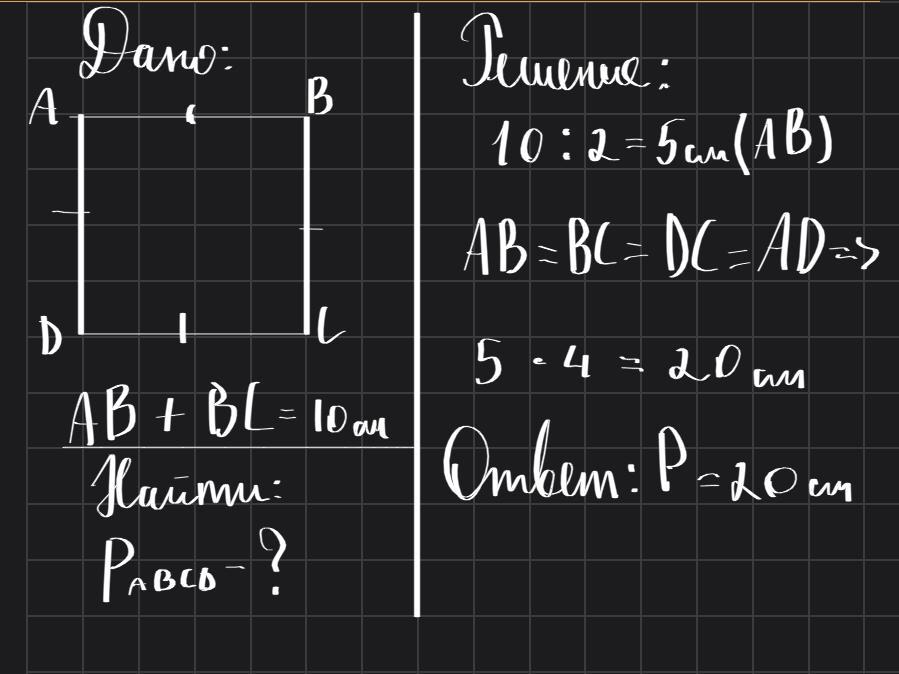 Дано:
A
B
D
C
AB + BC = 10 см
Найти:
P ABCD - ?
Решение:
10 : 2 = 5 см (AB)
AB = BC = DC = AD =>
5 · 4 = 20 см
Ответ: P = 20 см